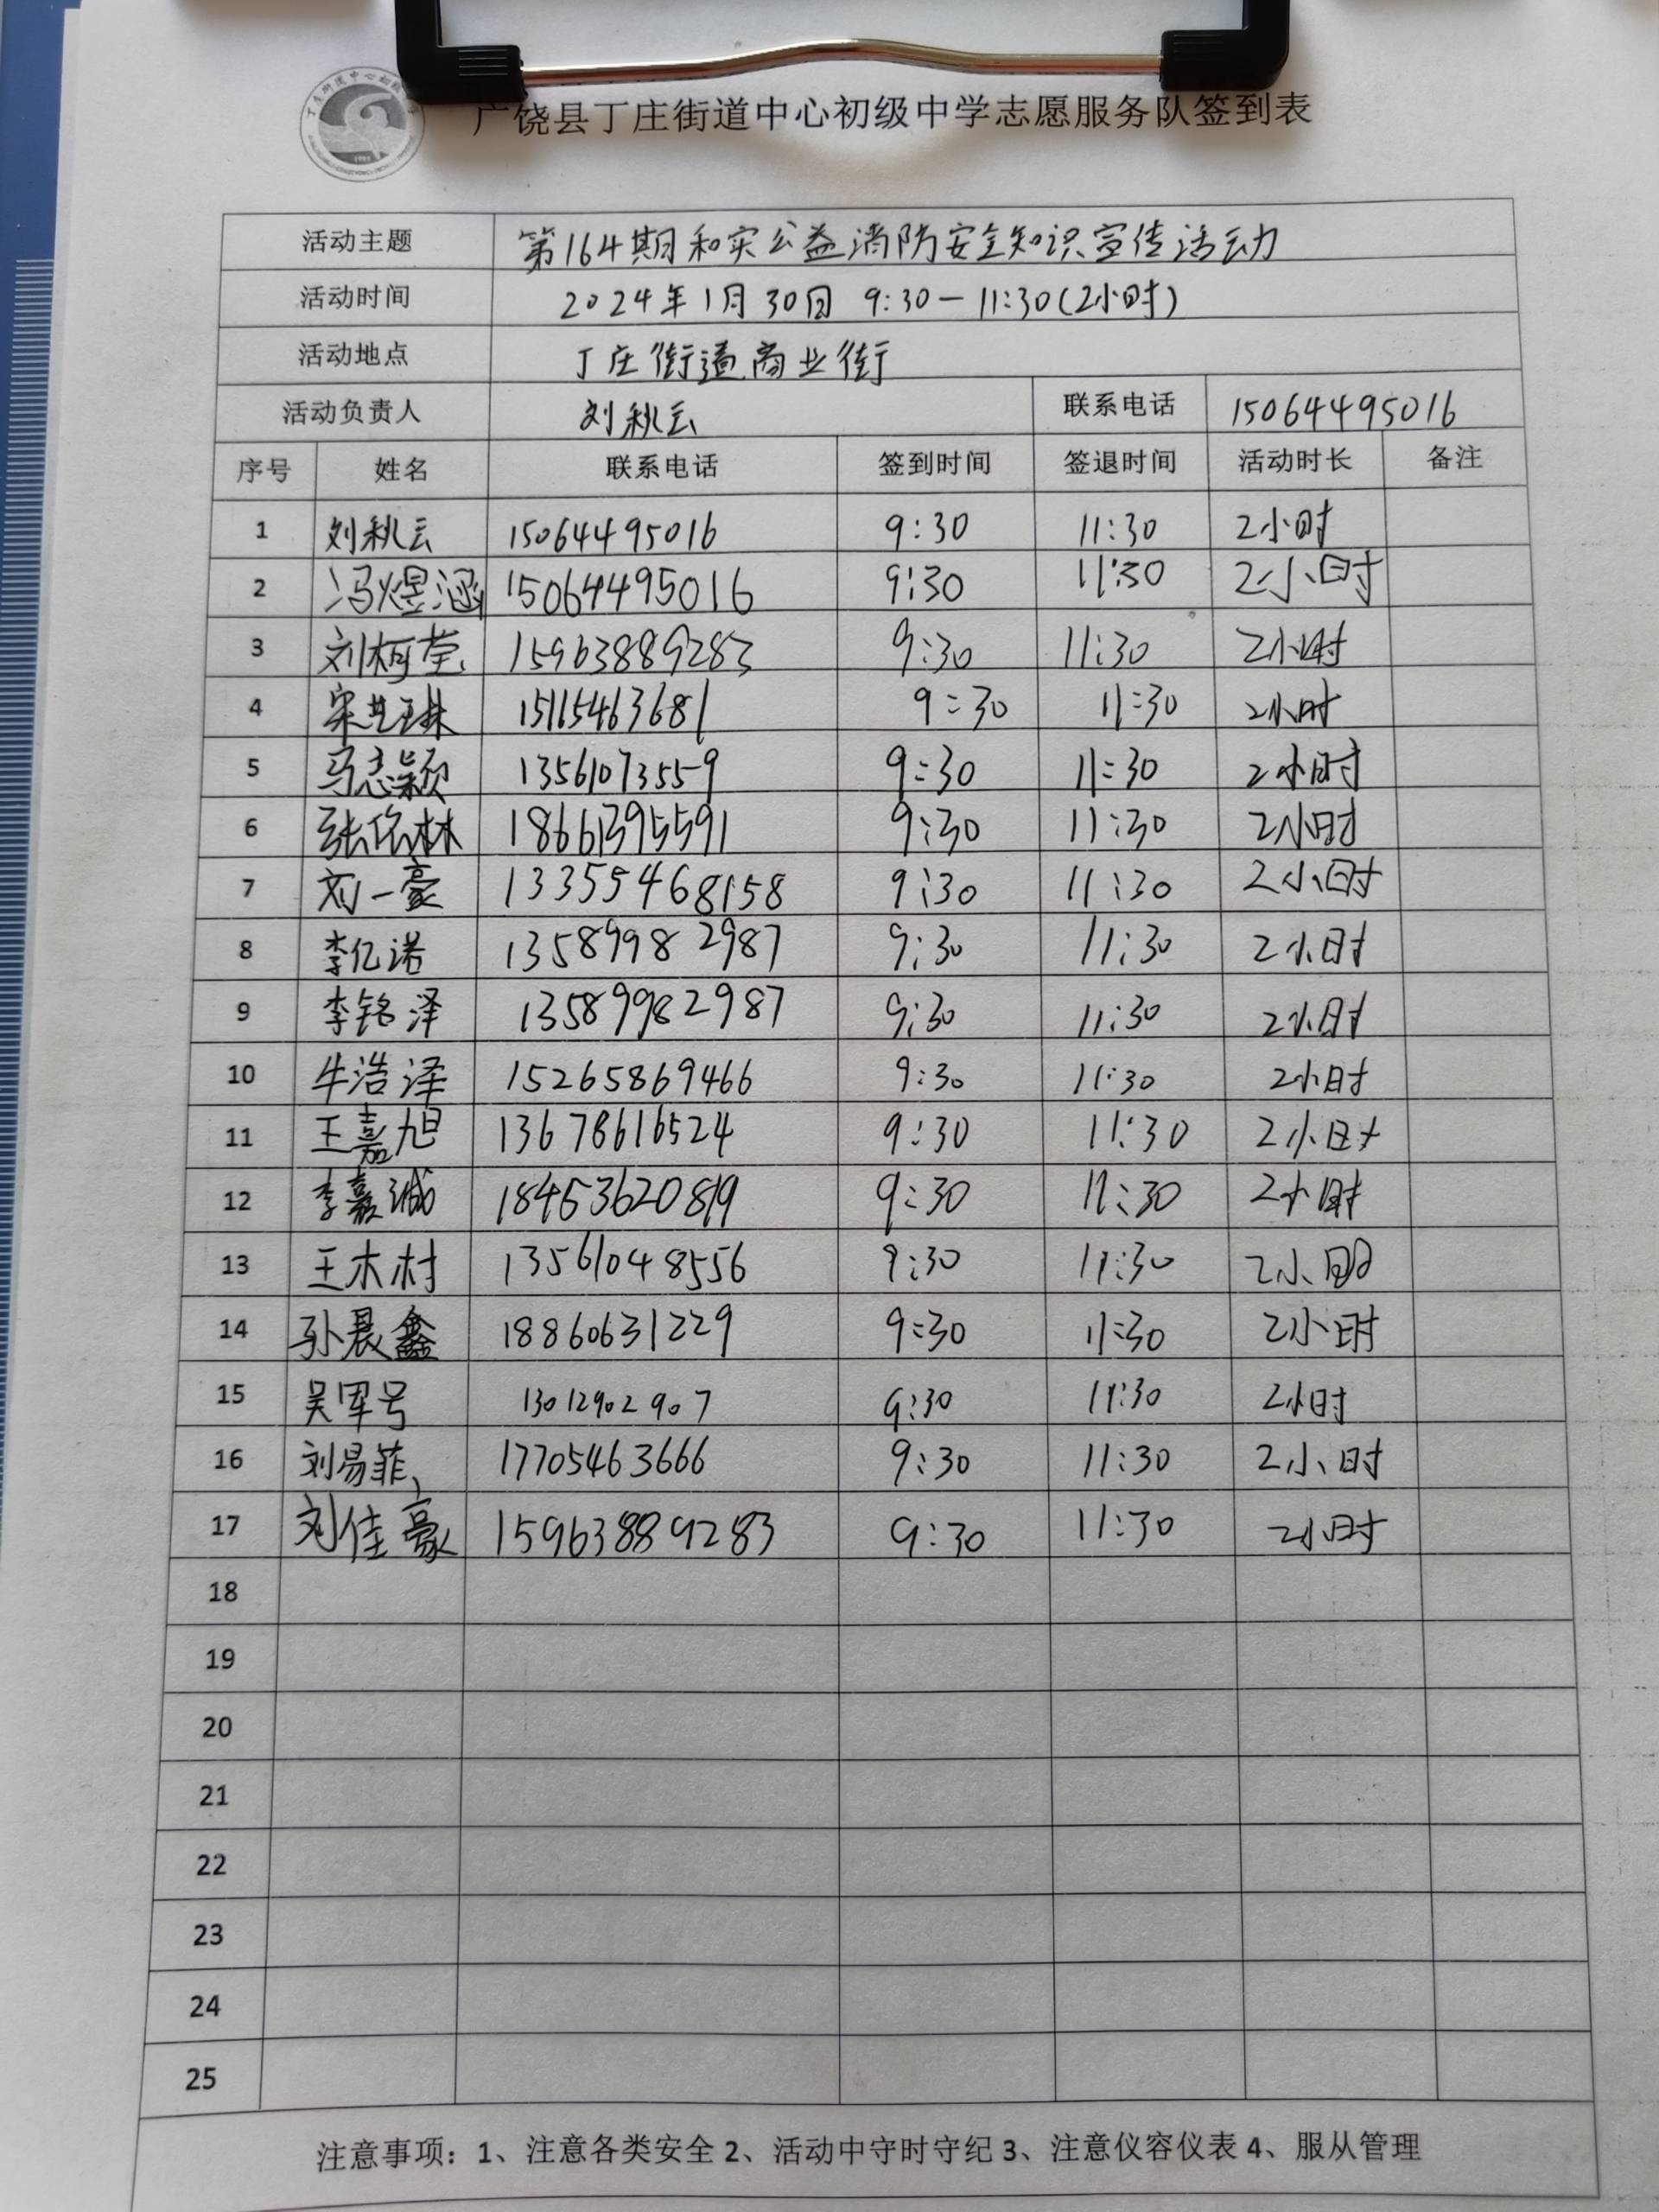 广饶县丁庄街道中心初级中学志愿服务队签到表
活动主题 第164期和实公益消防安全知识宣传活动
活动时间 2024年1月30日 9:30-11:30(2小时)
活动地点 丁庄街道商业街
活动负责人 刘秋云 联系电话 15064495016
序号 姓名 联系电话 签到时间 签退时间 活动时长 备注
1 刘秋云 15064495016 9:30 11:30 2小时
2 冯煜涵 15064495016 9:30 11:30 2小时
3 刘柯莹 15963889283 9:30 11:30 2小时
4 宋艺珠 15115463681 9:30 11:30 2小时
5 马志颖 13561073559 9:30 11:30 2小时
6 张依林 18661395591 9:30 11:30 2小时
7 刘一豪 133555468158 9:30 11:30 2小时
8 李亿诺 13589982987 9:30 11:30 2小时
9 李铭泽 13589982987 9:30 11:30 2小时
10 牛浩泽 15265869466 9:30 11:30 2小时
11 王嘉旭 13678616524 9:30 11:30 2小时
12 李嘉诚 18453620819 9:30 11:30 2小时
13 王木村 13561048556 9:30 11:30 2小时
14 孙晨鑫 18860631229 9:30 11:30 2小时
15 吴军号 13012902907 9:30 11:30 2小时
16 刘易菲 17705463666 9:30 11:30 2小时
17 刘佳豪 15963889283 9:30 11:30 2小时
18
19
20
21
22
23
24
25
注意事项：1、注意各类安全 2、活动中守时守纪 3、注意仪容仪表 4、服从管理